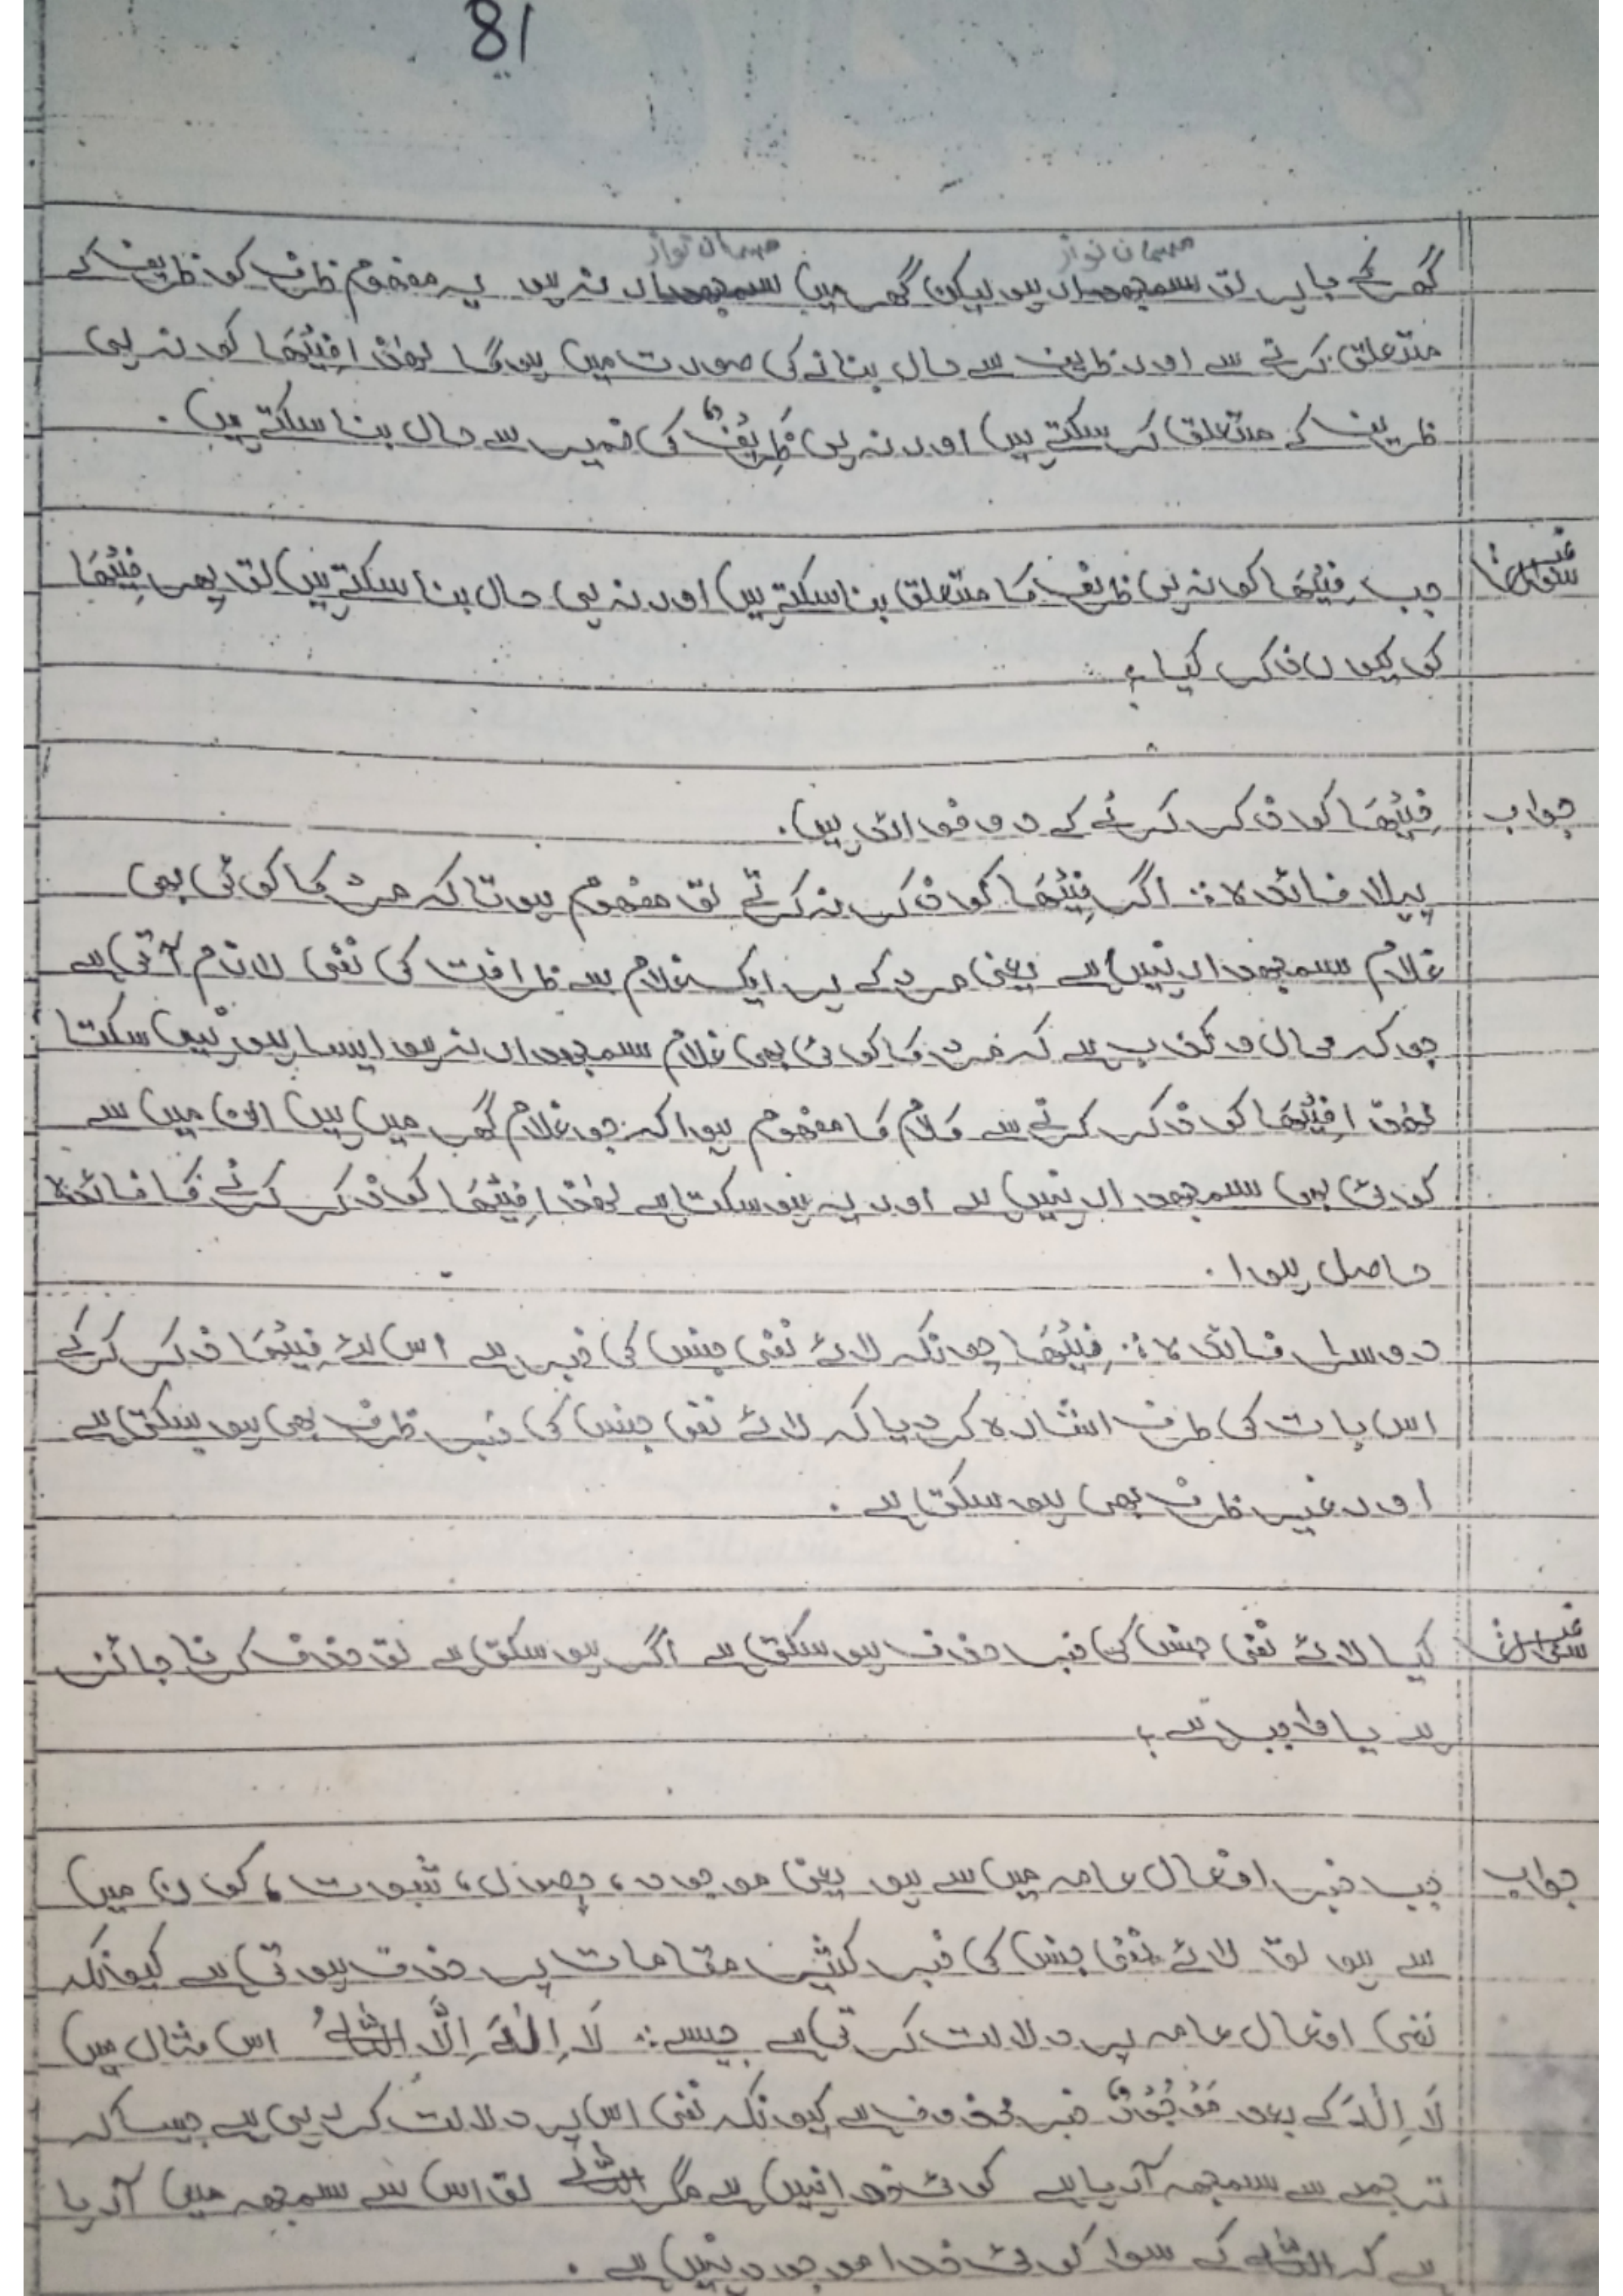 81
مہمان نواز مہمان نواز
گھر کے باہر تو سمجھدار ہو لیکن گھر میں سمجھدار نہ ہو یہ مفہوم ظرف کو ظریف کے
متعلق کرنے سے اور ظریف سے حال بنانے کی صورت میں ہوگا لہٰذا فِیْھَا کو نہ ہی
ظریف کے متعلق کر سکتے ہیں اور نہ ہی ظَرِیْفٌ کی ضمیر سے حال بنا سکتے ہیں۔
سوال جب فِیْھَا کو نہ ہی ظریف کا متعلق بنا سکتے ہیں اور نہ ہی حال بنا سکتے ہیں تو پھر فِیْھَا
کو کیوں ذکر کیا؟
جواب فِیْھَا کو ذکر کرنے کے دو فوائد ہیں۔
پہلا فائدہ: اگر فِیْھَا کو ذکر نہ کرتے تو مفہوم ہوتا کہ مرد کا کوئی بھی
غلام سمجھدار نہیں ہے یعنی مرد کے ہر ایک غلام سے ظرافت کی نفی لازم آتی ہے
جو کہ محال و کذب ہے کہ مرد کا کوئی بھی غلام سمجھدار نہ ہو ایسا ہو نہیں سکتا
لہٰذا فِیْھَا کو ذکر کرنے سے کلام کا مفہوم ہوا کہ جو غلام گھر میں ہیں ان میں سے
کوئی بھی سمجھدار نہیں ہے اور یہ ہو سکتا ہے لہٰذا فِیْھَا کو ذکر کرنے کا فائدہ
حاصل ہوا۔
دوسرا فائدہ: فِیْھَا چونکہ لائے نفی جنس کی خبر ہے اس لئے فِیْھَا ذکر کرکے
اس بات کی طرف اشارہ کر دیا کہ لائے نفی جنس کی خبر ظرف بھی ہو سکتی ہے
اور غیر ظرف بھی ہو سکتی ہے۔
سوال کیا لائے نفی جنس کی خبر حذف ہو سکتی ہے اگر ہو سکتی ہے تو حذف کرنا جائز
ہے یا واجب ہے؟
جواب جب خبر افعال عامہ میں سے ہو یعنی موجود، حصول، ثبوت، کون میں
سے ہو تو لائے نفی جنس کی خبر کثیر مقامات پر حذف ہوتی ہے کیونکہ
نفی افعال عامہ پر دلالت کرتی ہے جیسے: لَا اِلٰہَ اِلَّا اللّٰہُ اس مثال میں
لَا اِلٰہَ کے بعد مَوْجُوْدٌ خبر محذوف ہے کیونکہ نفی اس پر دلالت کر رہی ہے جیسا کہ
ترجمے سے سمجھ آرہا ہے کوئی خدا نہیں ہے مگر اللّٰہ تو اس سے سمجھ میں آرہا
ہے کہ اللّٰہ کے سوا کوئی خدا موجود نہیں ہے۔